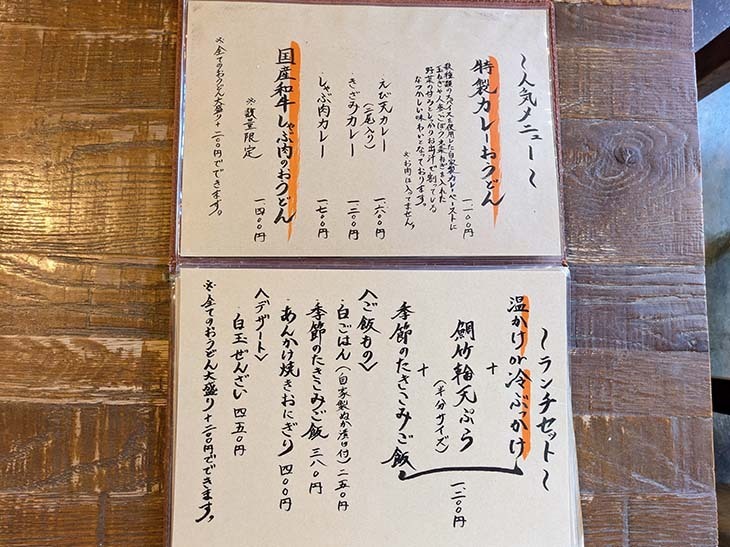 〜人気メニュー〜
特製カレーおうどん
一、一〇〇円
数種類のスパイス使用した自家製カレーペーストに
玉ねぎや人参、ごぼう、生姜、ねぎを入れた
野菜の甘みとしっかりお出汁で割っている
なつかしい味わいとなっております。
※お肉は入ってません。
・えび天カレー
(二尾入り)
一、六〇〇円
・きざみカレー
一、二〇〇円
・しゃぶ肉カレー
一、七〇〇円
国産和牛しゃぶ肉のおうどん
一、四〇〇円
※数量限定
※全てのおうどん大盛り+二〇〇円でできます。
〜ランチセット〜
温かけor冷ぶっかけ
+
鯛竹輪天ぷら
(半分サイズ)
+
季節のたきこみご飯
一、二〇〇円
〈ご飯もの〉
・白ごはん(自家製ぬか漬け付)二五〇円
・季節のたきこみご飯 三八〇円
・あんかけ焼きおにぎり 四〇〇円
〈デザート〉
白玉ぜんざい 四五〇円
※全てのおうどん大盛り+二〇〇円でできます。